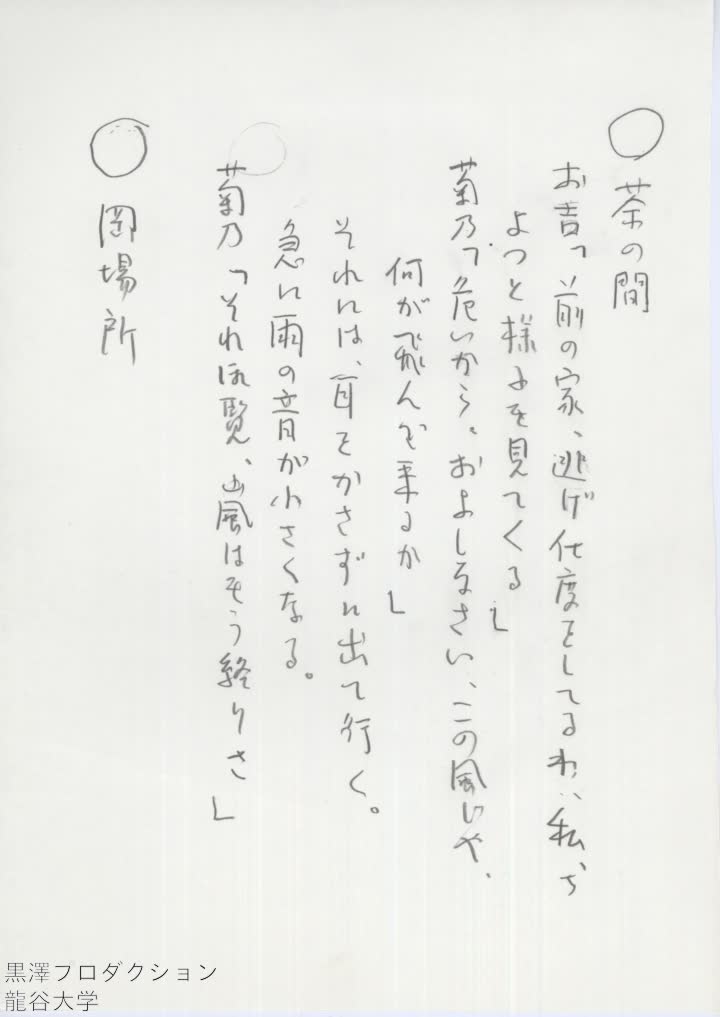 ○ 茶の間
お吉「前の家、逃げ仕度をしてるわ‥私、ち
よっと様子を見てくる」
菊乃「危いから。およしなさい、この風じゃ、
何が飛んで来るか」
それには、耳をかさずに出て行く。
急に雨の音が小さくなる。
菊乃「それ御覧、颱風はもう終りさ」
○ 岡場所
黒澤プロダクション
龍谷大学